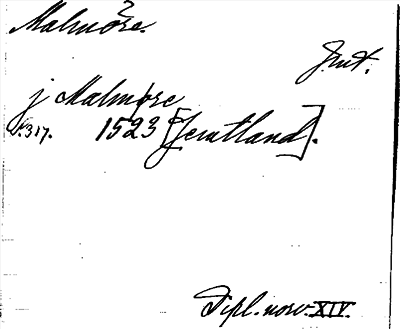 Malmøre.
Jmt.
j Malmøre
s.317. 1523 [Jemtland].
Dipl. norv. XIV.